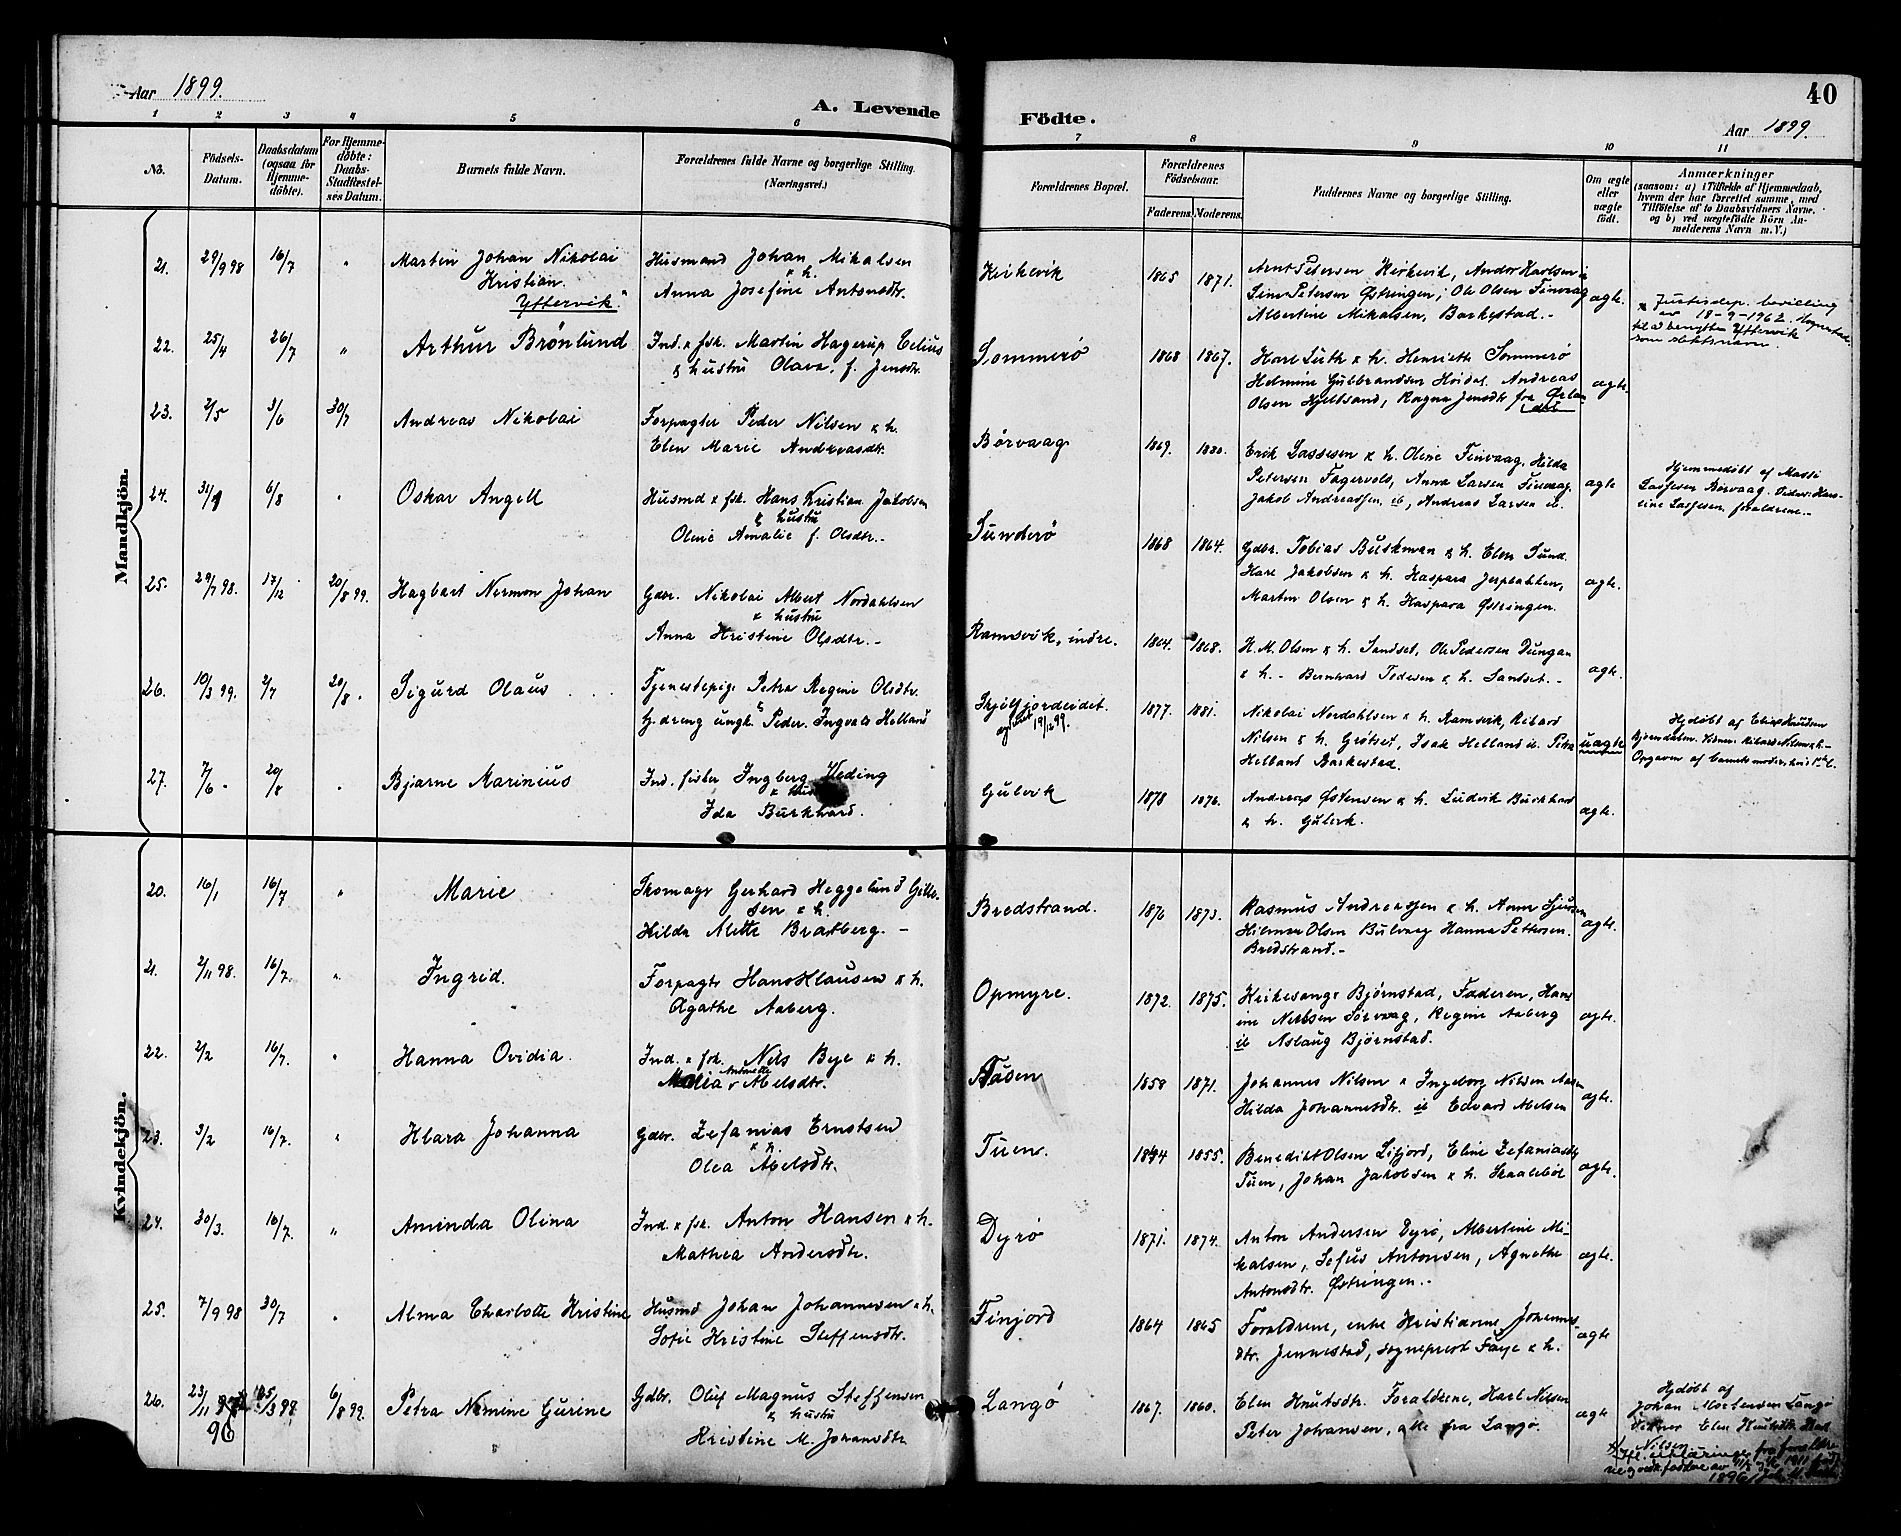 Aar 1899.
A. Levende
1 2 3 4 5 6
No.
Födsels-
Datum.
Daabsdatum
(ogsaa for
Hjemme-
döbte).
For Hjemme-
döbte:
Daabs-
Stadfæstel-
ses Datum.
Barnets fulde Navn.
Forældrenes fulde Navne og borgerlige Stilling.
(Næringsvei.)
Mandkjön.
21. 29/9 98 16/7 " Martin Johan Nikolai
Kristian
Yttervik"
Husmand Johan Mikalsen
& h.
Anna Josefine Antonsdtr.
22. 25/4 26/7 " Arthur Brönlund
Ind. & fsk. Martin Hagerup Celius
& hustru Olava, f. Jensdtr.
23. 2/5 3/6 30/7 Andreas Nikolai
Forpagter Peder Nilsen & h.
Elen Marie Andreasdtr.
24. 6/8 " Oskar Angell
Husmd & fsk. Hans Kristian Jakobsen
& hustru
Oline Amalie f. Olsdtr.
25. 29/7 98. 17/12 20/8 99. Hagbart Normon Johan
Gdbr. Nikolai Albert Nordahlsen
& hustru
Anna Kristine Olsdtr. -
26. 10/3 99. 2/7 20/8 . Sigurd Olaus
Tjenestepige Petra Regine Olsdtr.
G. dreng ungk. Peder Ingvald Helland
27. 7/6 - 20/8 . Bjarne Marinius
Ind. fisker Ingberg Veding
Ida Burkhard.
Kvindekjön.
20. 16/1 16/7 " Marie
Gerhard Heggelund Gilbe-
sen & h.
Hilda Alette Bratberg. -
21. 2/11 98. 16/7. " Ingrid.
Forpagtr Hans Klausen & h.
Agathe Aaberg.
22. 2/2 16/7. " Hanna Ovidia.
Ind. & fsk. Nils Bye & h.
Andrette
Abelsdtr.
23. 3/2 16/7. " Klara Johanna
Gdbr. Zefanias Ernstsen
& h.
Olea Abelsdtr.
24. 30/3. 16/7. " Aminda Olina
Ind. & fsk. Anton Hansen & h.
Mathea Andersdtr.
25. 7/9 98 30/7 " Alma Charlotte Kristine
Husmd Johan Johannesen & h.
Sofie Kristine Steffensdtr.
26. 23/11 96 6/8 99. Petra Nimine Gurine
Gdbr. Oluf Magnus Steffensen
& hustru
Kristine M. Johansdtr
Födte.
40
Aar 1899.
7 8 9 10 11
Forældrenes Bopæl.
Forældrenes
Födselsaar.
Faderens. Moderens.
Faddernes Navne og borgerlige Stilling.
Om ægte
eller
uægte
födt.
Anmærkninger
(saasom: a) i Tilfælde af Hjemmedaab,
hvem der har forrettet samme, med
Tilföielse af to Daabsvidners Navne,
og b) ved uægtefödte Börn An-
melderens Navn m. V.)
Kirkevik 1865 1871.
Arnt Petersen Kirkevik, Andor Karlsen
Petersen Østringen; Ole Olsen Finvaag
Albertine Mikalsen, Barkestad. -
ægte.
Justisdep. bevilling
av 18-9-1962.
til å benytte Yttervik
som slektsnavn.
Sommerö 1868 1867.
Karl Luth & h. Henriette Sommerö
Helmine Gulbrandsen Høidal. Andreas
Olsen Hjellsand, Ragna Jensdtr fra
ægte.
Börvaag 1869. 1880.
Erik Lassesen & h. Oline Finvaag. Hilda
Petersen Fagervold, Anna Larsen Finvaag.
Jakob Andreassen ib, Andreas Larsen ib.
ægte
Hjemmedöbt af
Lassesen Börvaag.
Lassesen, forældrene. -
Sunderö 1868 1864.
Gdbr. Tobias Buskman & h. Elen Sund.
Karl Jakobsen & h. Kaspara
Martin Olsen & h. Kaspara Østringen.
ægte.
Ramsvik, indre. 1864. 1868.
H. M. Olsen & h. Sandset. Ole Pedersen Dungan
& h. - Bernhard Todesen & h. Sandset. -
ægte.
Skjölfjordeidet. 19/12 99. 1877. 1881.
Nikolai Nordahlsen & h. Ramsvik, Rikard
Nilsen & h. Grötset, Isak Helland ib. Petra
Helland Barkestad.
uægte
Hjdöbt af Elias Knudsen
Opgaven af barnets moder,
Gulvik 1878 1876.
Andreas Østensen & h. Ludvik Burkhard
& h. Gulvik.
ægte.
Bredstrand. 1870 1873.
Rasmus Andreassen & h. Anne
Hilmar Olsen Bulvaag Hanna Pettersen.
Bredstrand. -
ægte.
Opmyre. 1872. 1875.
Kirkesangr Bjørnstad, Faderen, Hans
ine Nilsen Sørvaag, Regine Aaberg
ib Aslaug Bjørnstad.
ægte.
Aasen 1858 1871.
Johannes Nilsen & Ingeborg Nilsen Aasen
Hilda Johannesdtr. ib Edvard Abelsen
ægte.
Tuen. 1844 1855.
Benedikt Olsen Lifjord, Eline Zefaniasdtr
Tuen, Johan Jakobsen & h. Skaalebøl
ægte.
Dyrö 1871. 1874.
Anton Andersen Dyrö, Albertine Mi-
kalsen, Sofus Antonsen, Agnethe
Antonsdtr. Østringen. -
ægte.
Finjord 1864 1865
Forældrene, enke Kristianne Johannes-
dtr. Jennestad, sogneprest Faye & h.
ægte
Langö 1867. 1860.
Elen Knutsdtr. Forældrene, Karl Nilsen
Peter Johansen, alle fra Langö.
ægte
Hjdöbt af
Johan Mortensen Langö
Vidner Elen Knutsdtr. Karl
Nilsen.
erklæringer fra foreldre
1896